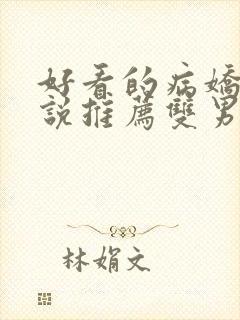 好看的病嬌
說推薦雙男
林娟文